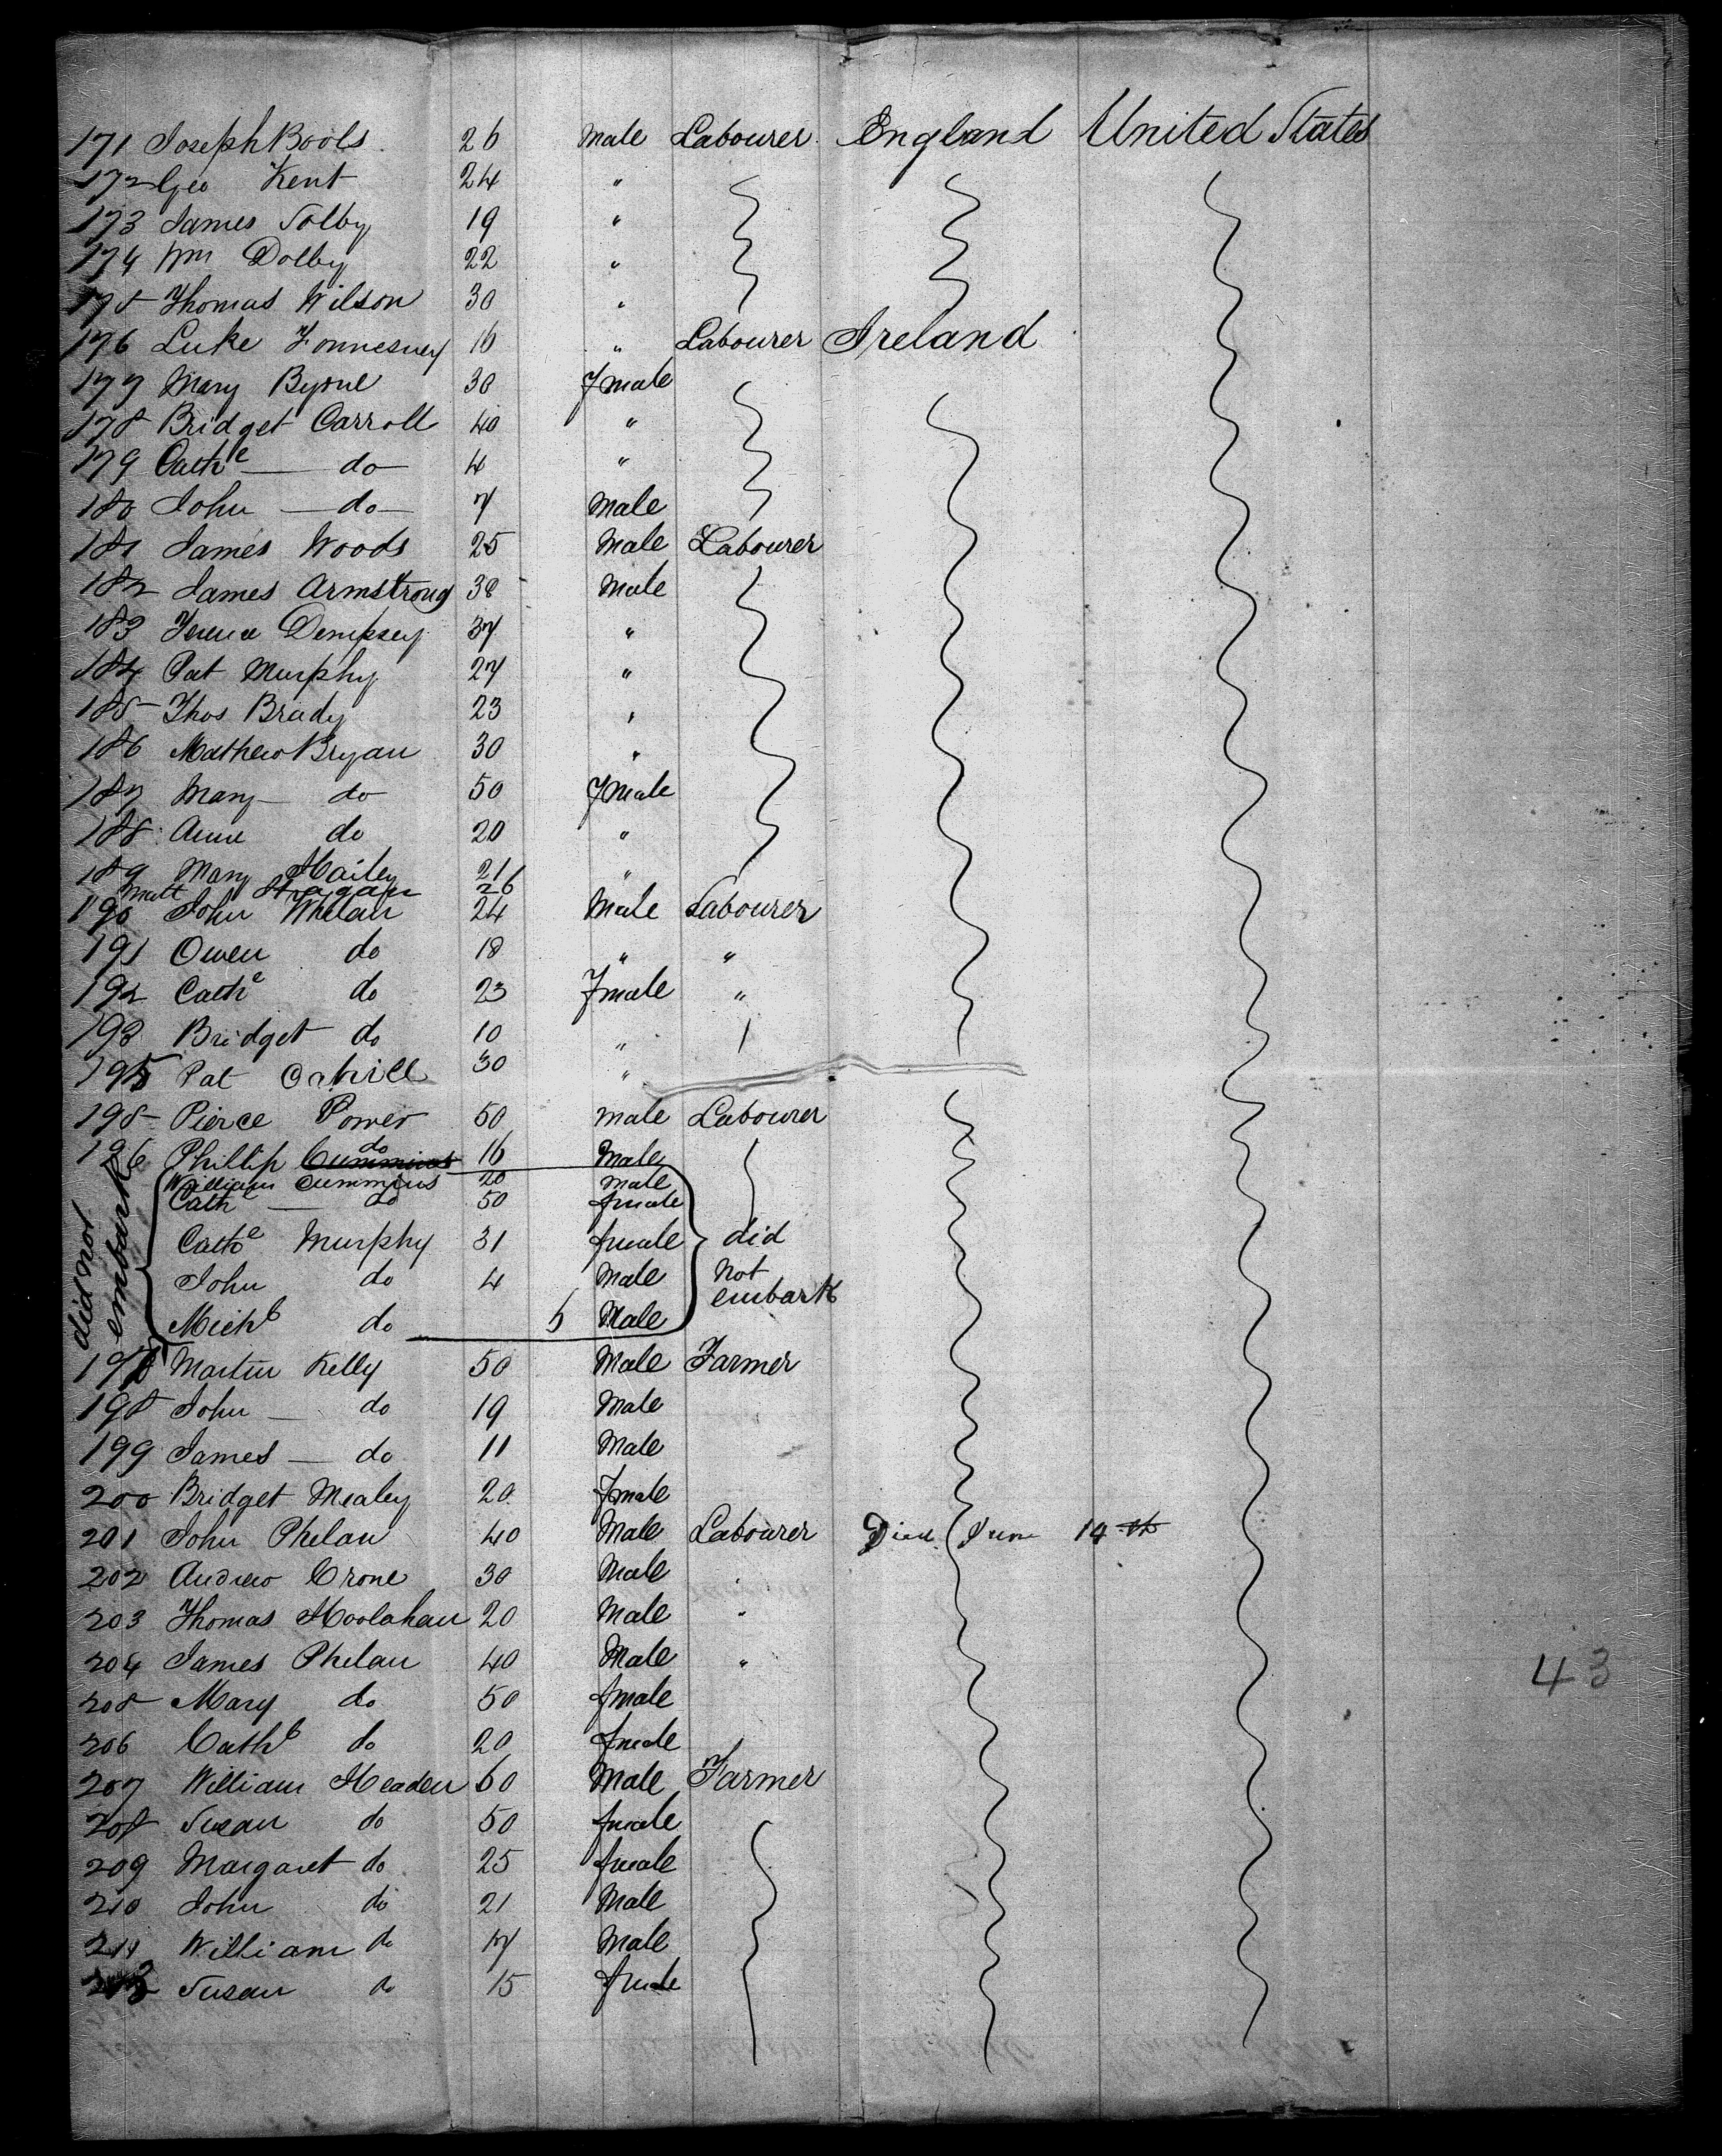 171 Joseph Bools 26 Male Labourer England United States
172 Geo Kent 24 "
173 James Solby 19 "
174 Wm Dolby 22 "
175 Thomas Wilson 30 "
176 Luke 16 " Labourer Ireland
177 Mary Byrne 30 Fmale
178 Bridget Carroll 40 "
179 Cathe do 4 "
180 John do 7 Male
181 James Woods 25 Male Labourer
182 James Armstrong 38 Male
183 Dempsey 37 "
184 Pat Murphy 27 "
185 Thos Brady 23 "
186 Mathew Bryan 30 "
187 Mary do 50 Fmale
188 Anne do 20 "
189 Mary Hailey 21 "
Matt 26
190 John Whelan 24 Male Labourer
191 Owen do 18 " "
192 Cathe do 23 Fmale "
193 Bridget do 10 "
195 Pat Cahill 30 "
195 Pierce Power 50 male Labourer
196 Phillip Cummins do 16 Male
William Cummins 20 male
Cath do 50 female
Cathe Murphy 31 female did
John do 4 Male not
embark
Michl do 6 Male
did not
embark
197 Martin Kelly 50 Male Farmer
198 John do 19 Male
199 James do 11 Male
200 Bridget Mealey 20 Fmale
201 John Phelan 40 Male Labourer Died June 14th
202 Andrew Crone 30 Male "
203 Thomas Hoolahan 20 Male "
204 James Phelan 40 Male "
205 Mary do 50 fmale
206 Cath do 20 female
207 William Headen 60 Male Farmer
208 Susan do 50 female
209 Margaret do 25 female
210 John do 21 Male
211 William do 17 Male
Susan do 15 female
43